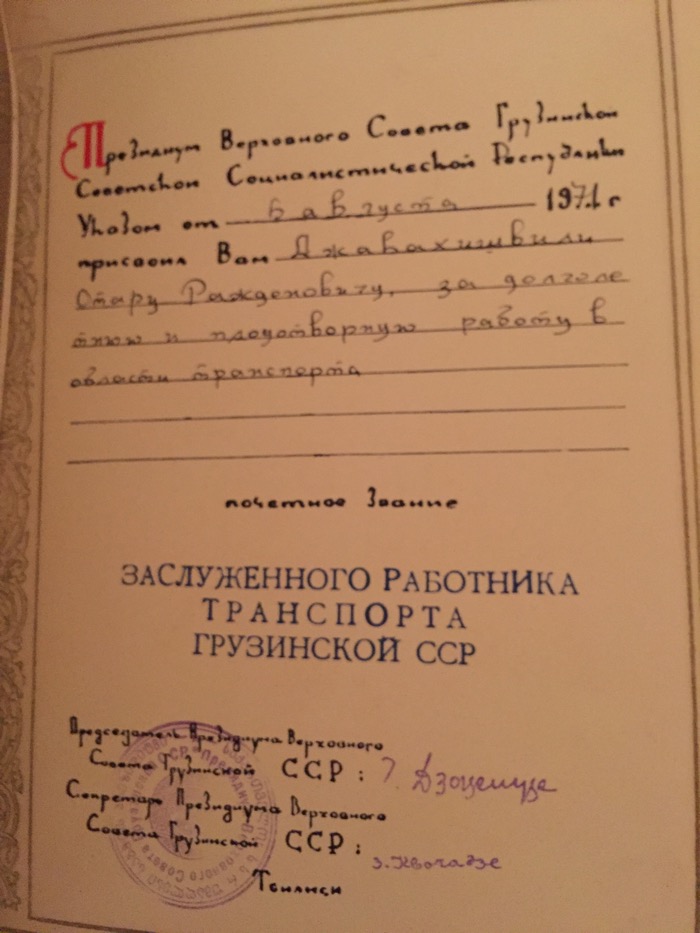 Президиум Верховного Совета Грузинской
Советской Социалистической Республики
Указом от 6 августа 1971 г
присвоил Вам Джавахишвили
Отару Ражденовичу, за долголе
тнюю и плодотворную работу в
области транспорта
почетное звание
ЗАСЛУЖЕННОГО РАБОТНИКА
ТРАНСПОРТА
ГРУЗИНСКОЙ ССР
Председатель Президиума Верховного
Совета Грузинской ССР: Г. Дзоценидзе
Секретарь Президиума Верховного
Совета Грузинской ССР:
З. Квачадзе
Тбилиси